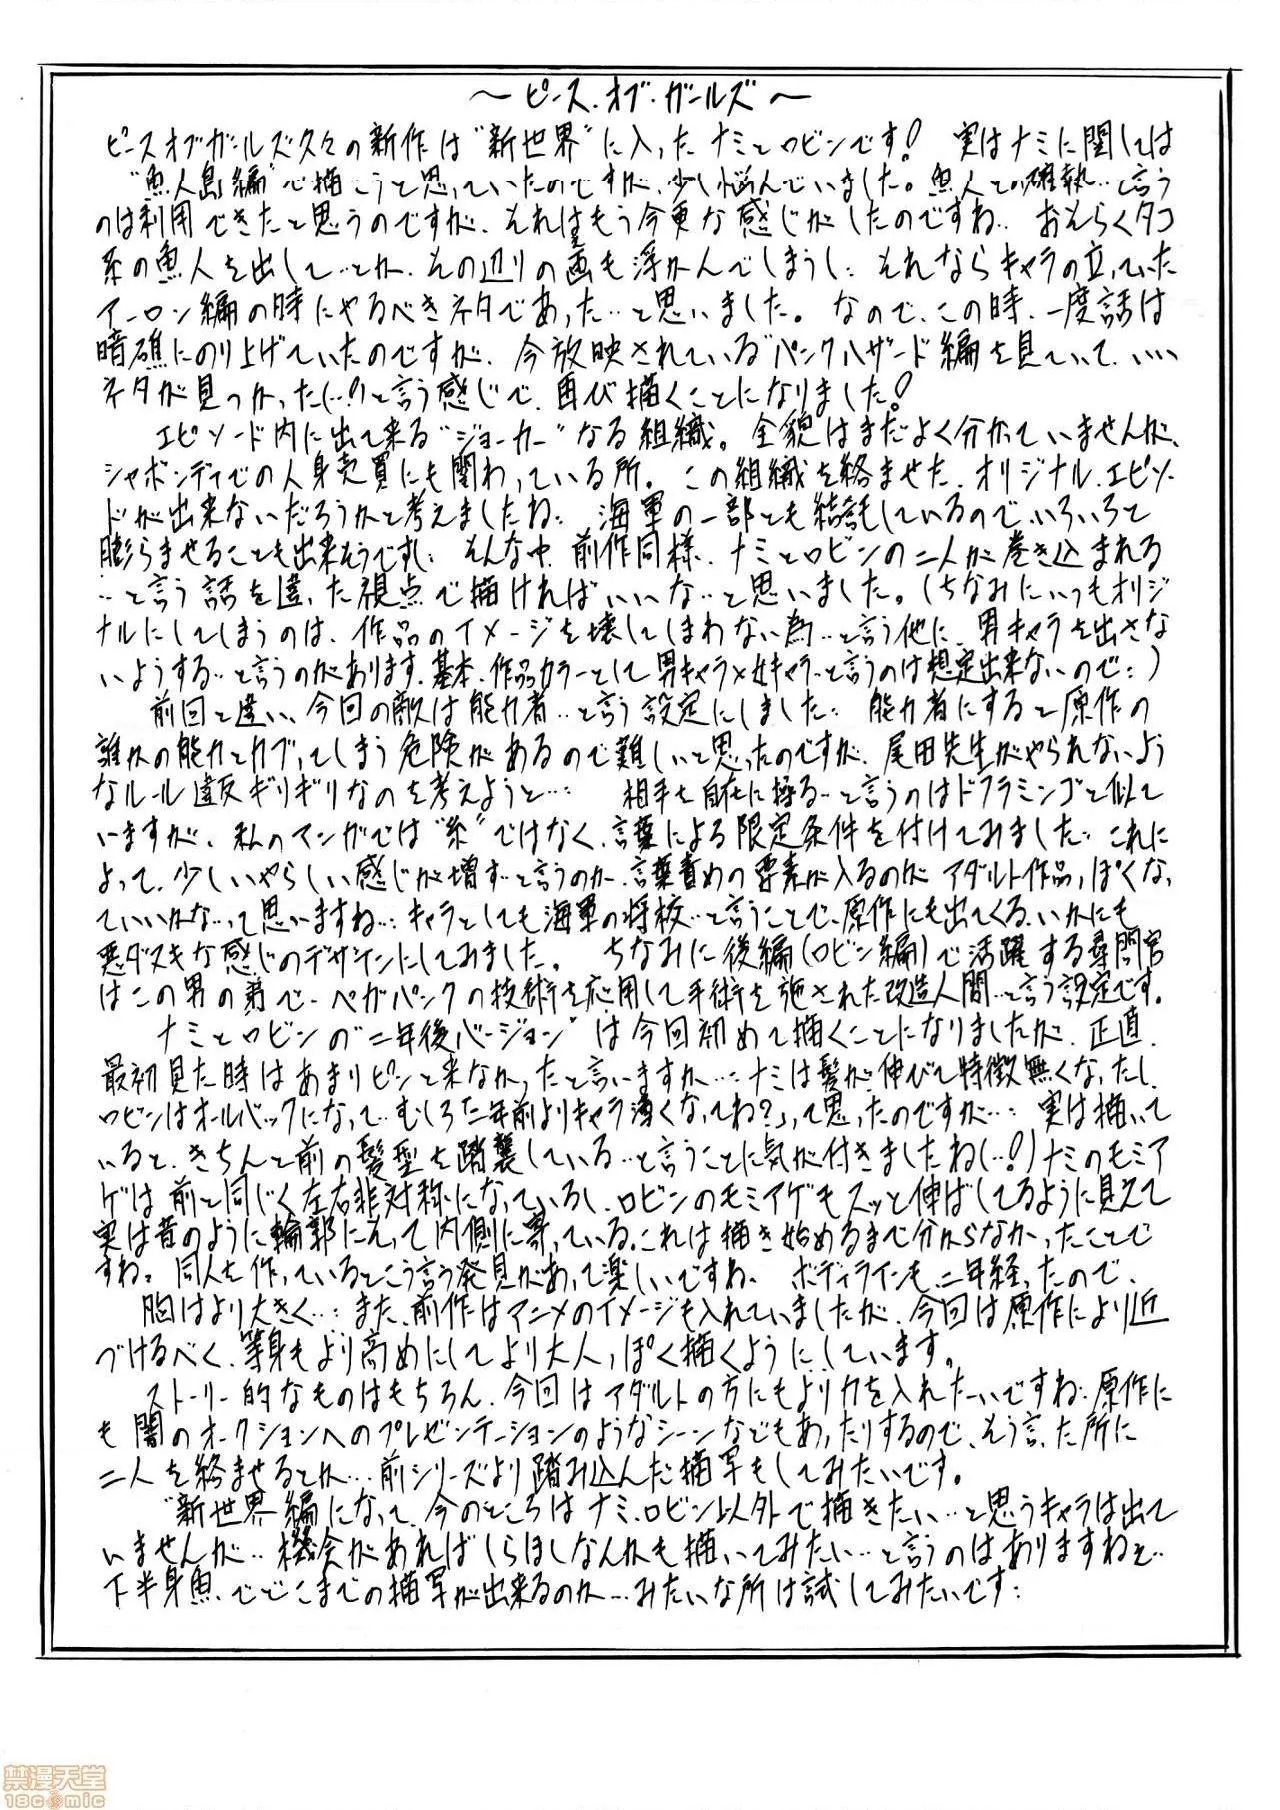 ～ピース・オブ・ガールズ～
ピースオブガールズ久々の新作は"新世界"に入ったナミとロビンです! 実はナミに関しては
"魚人島編"で描こうと思っていたのですが、少し悩んでいました。魚人との確執…と言う
のは利用できたと思うのですが、それはもう今更な感じがしたのですね… おそらくタコ
系の魚人を出して…とか、その辺りの画も浮かんでしまうし… それならキャラの立っていた
アーロン編の時にやるべきネタであった…と思いました。なので、この時、一度話は
暗礁にのり上げていたのですが、今放映されている"パンクハザード編を見ていて、いい
ネタが見つかった(…!)と言う感じで、再び描くことになりました!
エピソード内に出て来る"ジョーカー"なる組織。全貌はまだよく分かっていませんが、
シャボンディでの人身売買にも関わっている所。この組織を絡ませた、オリジナル・エピソー
ドが出来ないだろうかと考えましたね… 海軍の一部とも結託しているので、いろいろと
膨らませることも出来そうですし… そんな中、前作同様、ナミとロビンの二人が巻き込まれる
…と言う話を違った視点で描ければいいな…と思いました。(ちなみにいつもオリジ
ナルにしてしまうのは、作品のイメージを壊してしまわない為…と言う他に、男キャラを出さな
いようする…と言うのがあります。基本、作品カラーとして男キャラ×女キャラ…と言うのは想定出来ないので…)
前回と違い、今回の敵は能力者…と言う設定にしました… 能力者にすると原作の
誰かの能力とカブってしまう危険があるので難しいと思ったのですが、尾田先生がやられないよう
なルール違反ギリギリなのを考えようと… 相手を自在に操る…と言うのはドフラミンゴと似て
いますが、私のマンガでは"糸"ではなく、言葉による限定条件を付けてみました… これに
よって、少しいやらしい感じが増す…と言うのか、言葉責めの要素が入るのが アダルト作品っぽくなっ
ていいかな…って思いますね… キャラとしても海軍の将校…と言うことで、原作にも出てくる、いかにも
悪ダスキな感じのデザインにしてみました。 ちなみに後編(ロビン編)で活躍する尋問官
はこの男の弟で、ベガパンクの技術を応用して手術を施された改造人間…と言う設定です。
ナミとロビンの"二年後バージョン"は今回初めて描くことになりましたが、正直、
最初見た時はあまりピンと来なかったと言いますか… ナミは髪が伸びて特徴無くなったし、
ロビンはオールバックになって…むしろ「二年前よりキャラ薄くなってね?」って思ったのですが… 実は描いて
いると、きちんと前の髪型を踏襲している…と言うことに気が付きましたね(…!)ナミのモミア
ゲは前と同じく左右非対称になっているし、ロビンのモミアゲもスッと伸ばしてるように見えて
実は昔のように輪郭にそって内側に寄っている。これは描き始めるまで分からなかったことで
すね。同人を作っているとこう言う発見があって楽しいですね。 ボディラインも、二年経ったので、
胸はより大きく… また、前作はアニメのイメージも入れていましたが、今回は原作により近
づけるべく、等身もより高めにしてより大人っぽく描くようにしています。
ストーリー的なものはもちろん、今回はアダルトの方にもより力を入れたいですね… 原作に
も闇のオークションへのプレゼンテーションのようなシーンなどもあったりするので、そう言った所に
二人を絡ませるとか… 前シリーズより踏み込んだ描写もしてみたいです。
"新世界編になって、今のところはナミ、ロビン以外で描きたい…と思うキャラは出て
いませんが… 機会があればしらほしなんかも描いてみたい…と言うのはありますねぇ…
下半身魚…でどこまでの描写が出来るのか…みたいな所は試してみたいです…
禁漫天堂
18comic